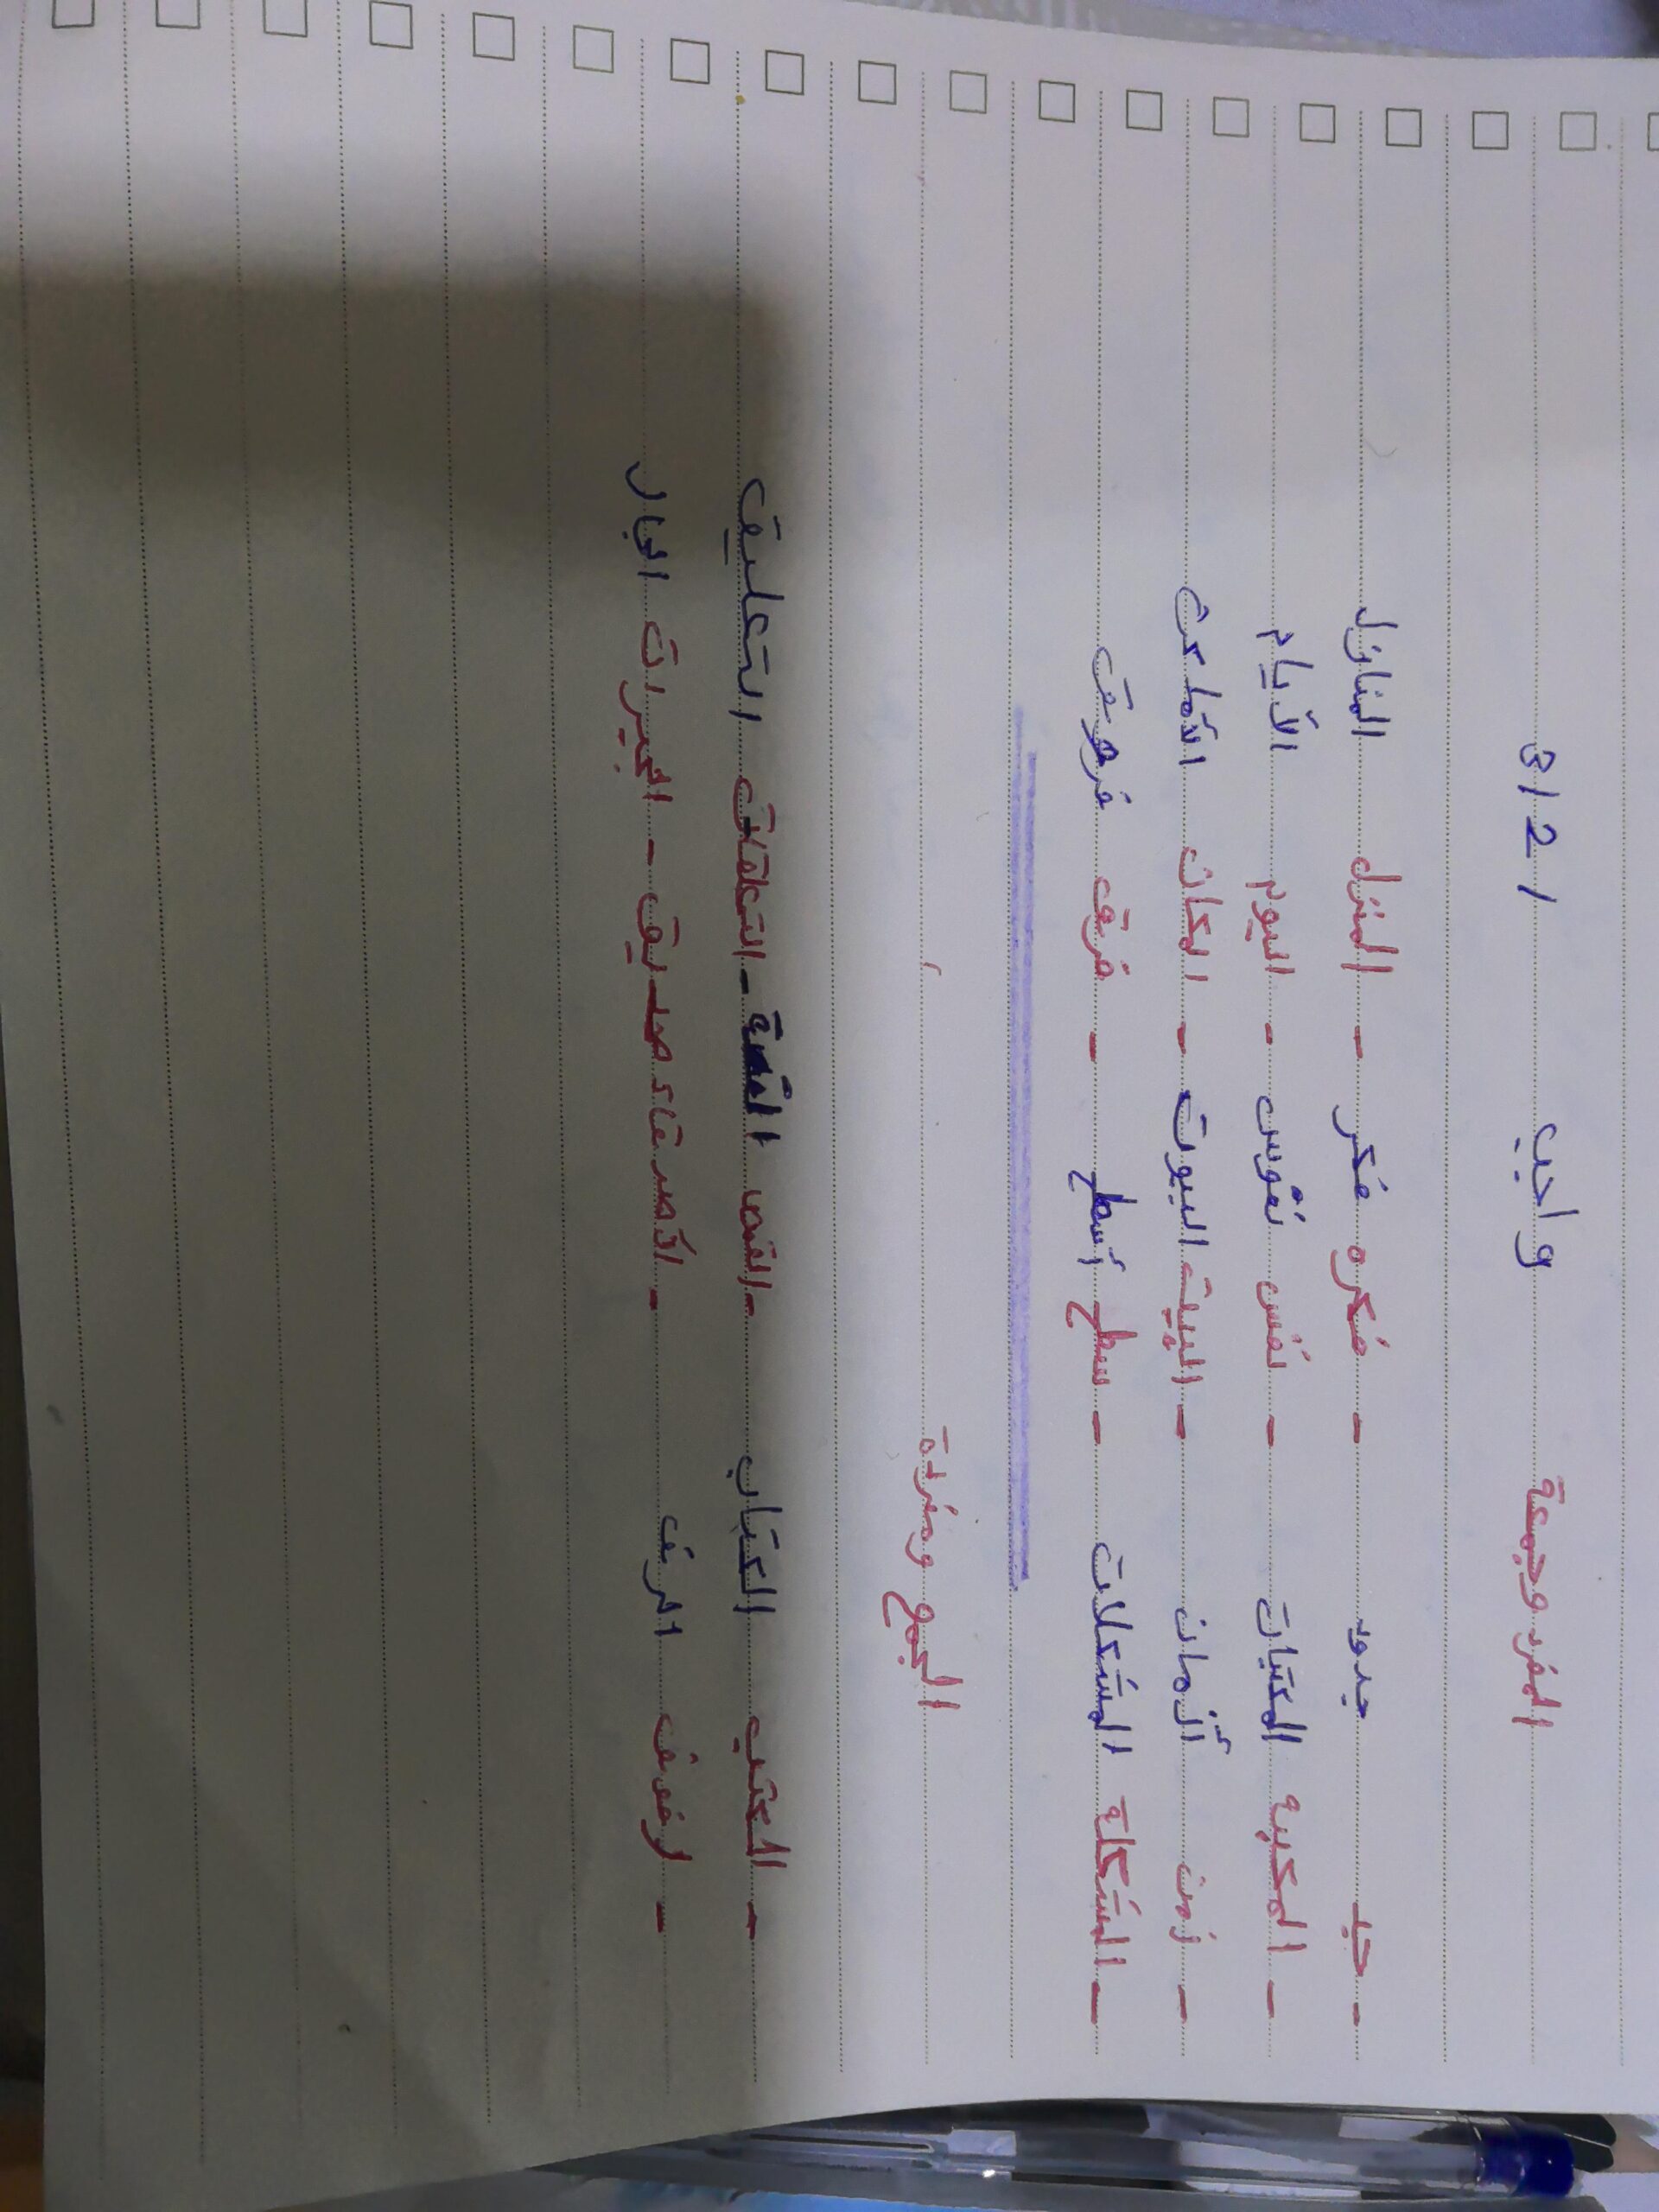 المفرد وجمعة واجب 3/2/
- جيد جيدود - فكره فكر - المنزل المنازل
- المكتبه المكتبات - نفس نفوس - اليوم الأيام
- زمن أزمان - البيت البيوت - المكان الأماكن
- المشكلة المشكلات - سطح أسطح - فريق
الجمع ومفردة
- الكتب الكتاب - القصص القصة - التعلقات التعليق
- رفوف الرف - الأصدقاء صديق - الجيران الجار